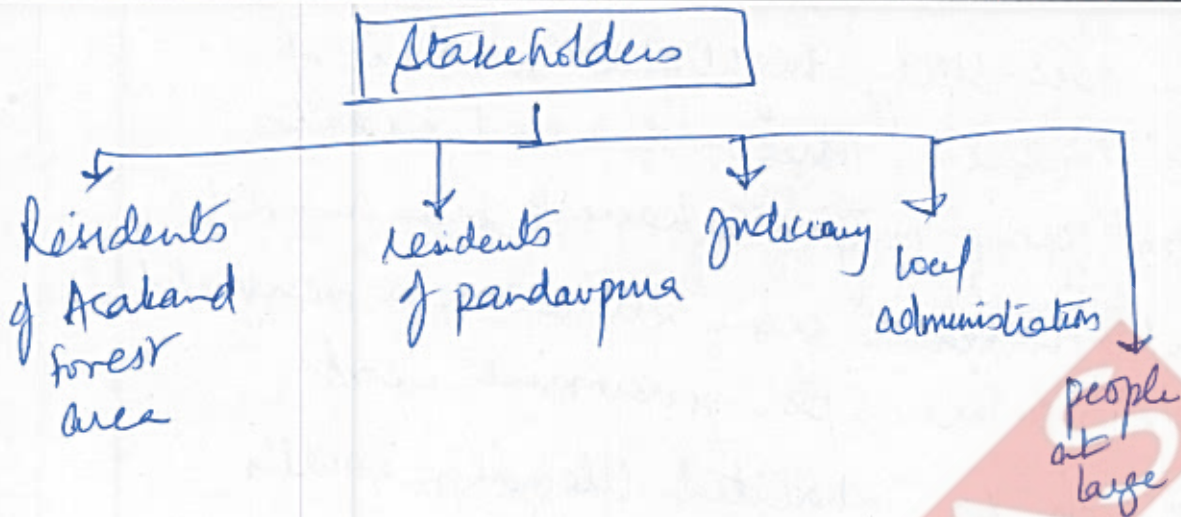 Stakeholders
Residents
of Arakand
forest
area
residents
of pandavpura
Judiciary
local
administration
people
at
large